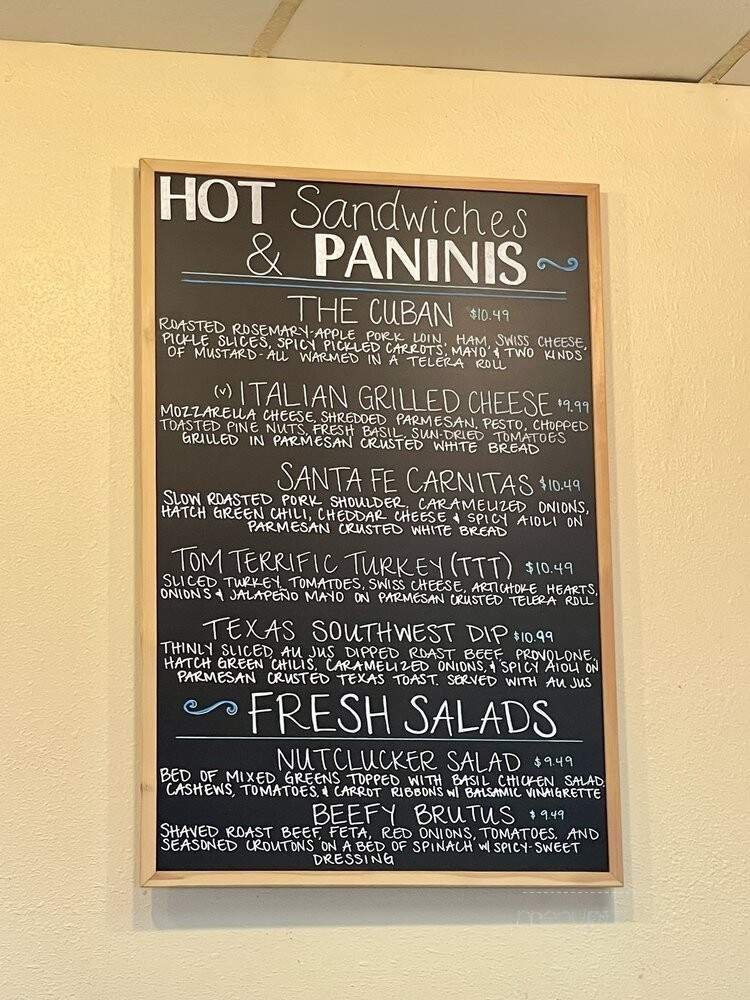 HOT Sandwiches
& PANINIS
THE CUBAN $10.49
ROASTED ROSEMARY-APPLE PORK LOIN, HAM, SWISS CHEESE,
PICKLE SLICES, SPICY PICKLED CARROTS, MAYO & TWO KINDS
OF MUSTARD - ALL WARMED IN A TELERA ROLL
(V) ITALIAN GRILLED CHEESE $9.99
MOZZARELLA CHEESE, SHREDDED PARMESAN, PESTO, CHOPPED
TOASTED PINE NUTS, FRESH BASIL, SUN-DRIED TOMATOES
GRILLED IN PARMESAN CRUSTED WHITE BREAD
SANTA FE CARNITAS $10.49
SLOW ROASTED PORK SHOULDER, CARAMELIZED ONIONS,
HATCH GREEN CHILI, CHEDDAR CHEESE & SPICY AIOLI ON
PARMESAN CRUSTED WHITE BREAD
TOM TERRIFIC TURKEY (TTT) $10.49
SLICED TURKEY, TOMATOES, SWISS CHEESE, ARTICHOKE HEARTS,
ONIONS & JALAPEÑO MAYO ON PARMESAN CRUSTED TELERA ROLL
TEXAS SOUTHWEST DIP $10.99
THINLY SLICED AU JUS DIPPED ROAST BEEF, PROVOLONE,
HATCH GREEN CHILIS, CARAMELIZED ONIONS, & SPICY AIOLI ON
PARMESAN CRUSTED TEXAS TOAST. SERVED WITH AU JUS
FRESH SALADS
NUTCLUCKER SALAD $9.49
BED OF MIXED GREENS TOPPED WITH BASIL CHICKEN SALAD,
CASHEWS, TOMATOES, & CARROT RIBBONS W/ BALSAMIC VINAIGRETTE
BEEFY BRUTUS $9.49
SHAVED ROAST BEEF, FETA, RED ONIONS, TOMATOES, AND
SEASONED CROUTONS ON A BED OF SPINACH W/ SPICY-SWEET
DRESSING